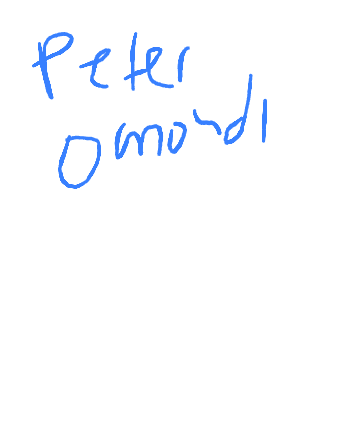 Peter
Omondi